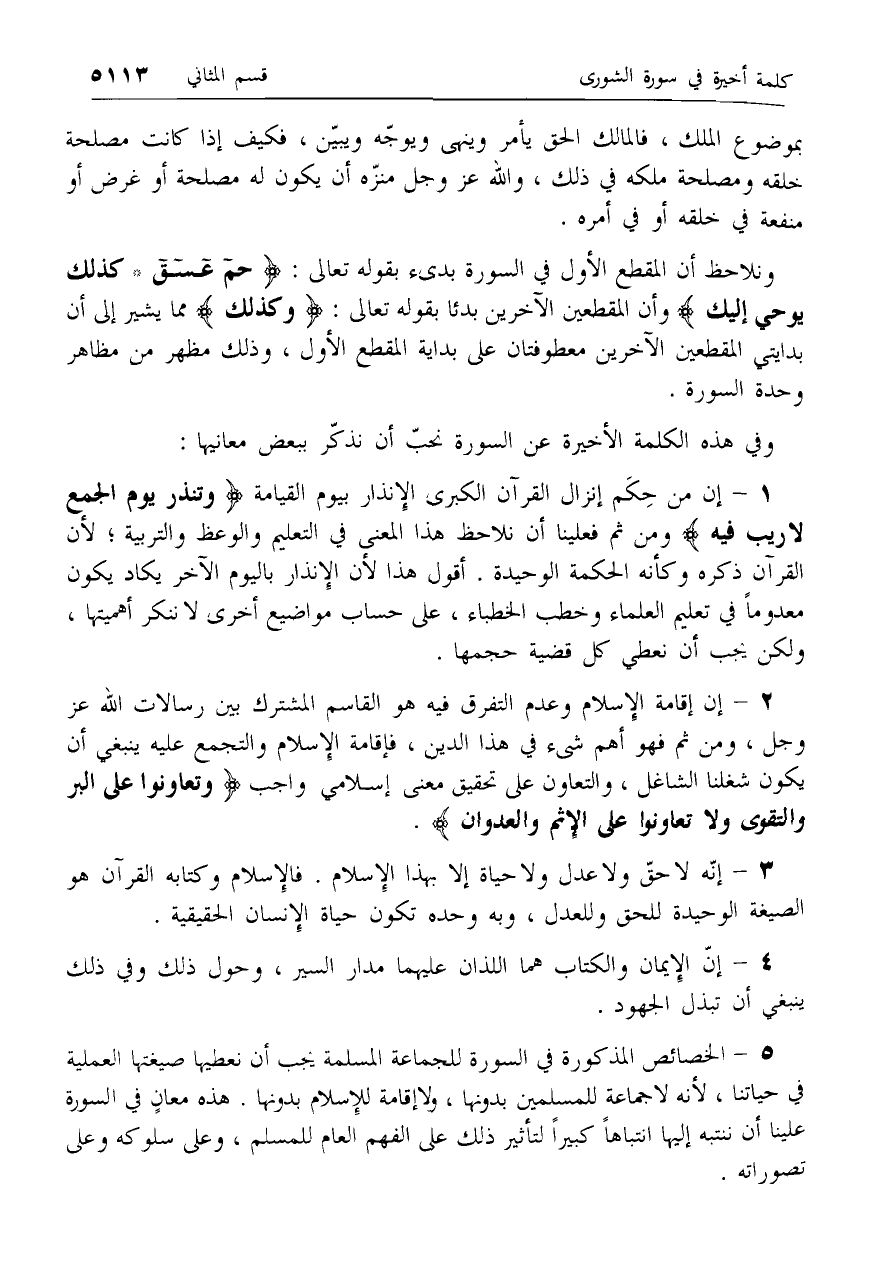 كلمة أخيرة في سورة الشورى قسم المثاني ٥١١٣
بموضوع الملك ، فالمالك الحق يأمر وينهى ويوجّه ويبيّن ، فكيف إذا كانت مصلحة
خلقه ومصلحة ملكه في ذلك ، والله عز وجل منزّه أن يكون له مصلحة أو غرض أو
منفعة في خلقه أو في أمره .
ونلاحظ أن المقطع الأول في السورة بدىء بقوله تعالى : ﴿ حمٓ عٓسٓقٓ * كذلك
يوحي إليك ﴾ وأن المقطعين الآخرين بدئا بقوله تعالى : ﴿ وكذلك ﴾ مما يشير إلى أن
بدايتي المقطعين الآخرين معطوفتان على بداية المقطع الأول ، وذلك مظهر من مظاهر
وحدة السورة .
وفي هذه الكلمة الأخيرة عن السورة نحبّ أن نذكّر ببعض معانيها :
١ – إن من حِكَم إنزال القرآن الكبرى الإنذار بيوم القيامة ﴿ وتنذر يوم الجمع
لاريب فيه ﴾ ومن ثم فعلينا أن نلاحظ هذا المعنى في التعليم والوعظ والتربية ؛ لأن
القرآن ذكره وكأنه الحكمة الوحيدة . أقول هذا لأن الإنذار باليوم الآخر يكاد يكون
معدوماً في تعليم العلماء وخطب الخطباء ، على حساب مواضيع أخرى لاننكر أهميتها ،
ولكن يجب أن نعطي كل قضية حجمها .
٢ – إن إقامة الإسلام وعدم التفرق فيه هو القاسم المشترك بين رسالات الله عز
وجل ، ومن ثم فهو أهم شىء في هذا الدين ، فإقامة الإسلام والتجمع عليه ينبغي أن
يكون شغلنا الشاغل ، والتعاون على تحقيق معنى إسلامي واجب ﴿ وتعاونوا على البر
والتقوى ولا تعاونوا على الإثم والعدوان ﴾ .
٣ – إنّه لاحقّ ولاعدل ولاحياة إلا بهذا الإسلام . فالإسلام وكتابه القرآن هو
الصيغة الوحيدة للحق وللعدل ، وبه وحده تكون حياة الإنسان الحقيقية .
٤ – إنّ الإيمان والكتاب هما اللذان عليهما مدار السير ، وحول ذلك وفي ذلك
ينبغي أن تبذل الجهود .
٥ – الخصائص المذكورة في السورة للجماعة المسلمة يجب أن نعطيها صيغتها العملية
في حياتنا ، لأنه لاجماعة للمسلمين بدونها ، ولاإقامة للإسلام بدونها . هذه معانٍ في السورة
علينا أن ننتبه إليها انتباهاً كبيراً لتأثير ذلك على الفهم العام للمسلم ، وعلى سلوكه وعلى
تصوراته .